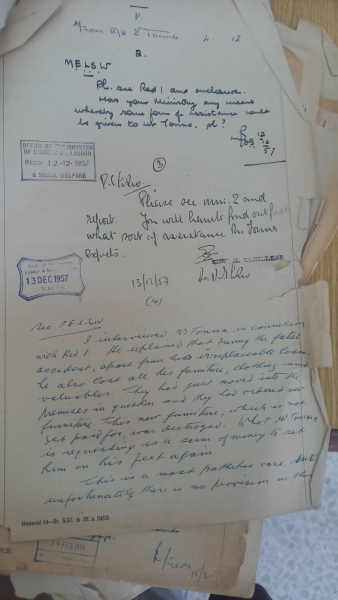 1
From Mr E Tonna 4. 12.
2.
M.E.L.S.W
Pl. see Red 1 and enclosure.
Has your Ministry any means
whereby some form of assistance could
be given to Mr Tonna, pl?
12
12
57
OFFICE OF THE MINISTER
OF EDUCATION, LABOUR
RECD 12-12-1957
& SOCIAL WELFARE
(3)
Please see min. 2 and
report. You will kindly find out
what sort of assistance Mr Tonna
expects.
13 DEC 1957
MALTA
13/12/57
(4)
I interviewed Mr Tonna in connection
with Red 1. He explained that during the fatal
accident, apart from his irreplaceable losses
he also lost all his furniture, clothing and
valuables. They had just moved into the
premises in question and they had ordered new
furniture. This new furniture, which is not
yet paid for, was destroyed. What Mr Tonna
is requesting is a sum of money to set
him on his feet again.
This is a most pathetic case but
unfortunately there is no provision in the
General 14
FEB
15/2